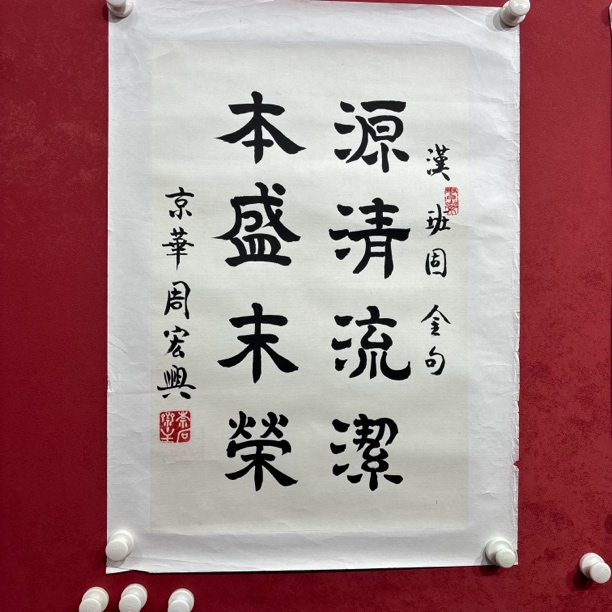 漢 班固 金句
源清流潔
本盛末榮
京華周宏興